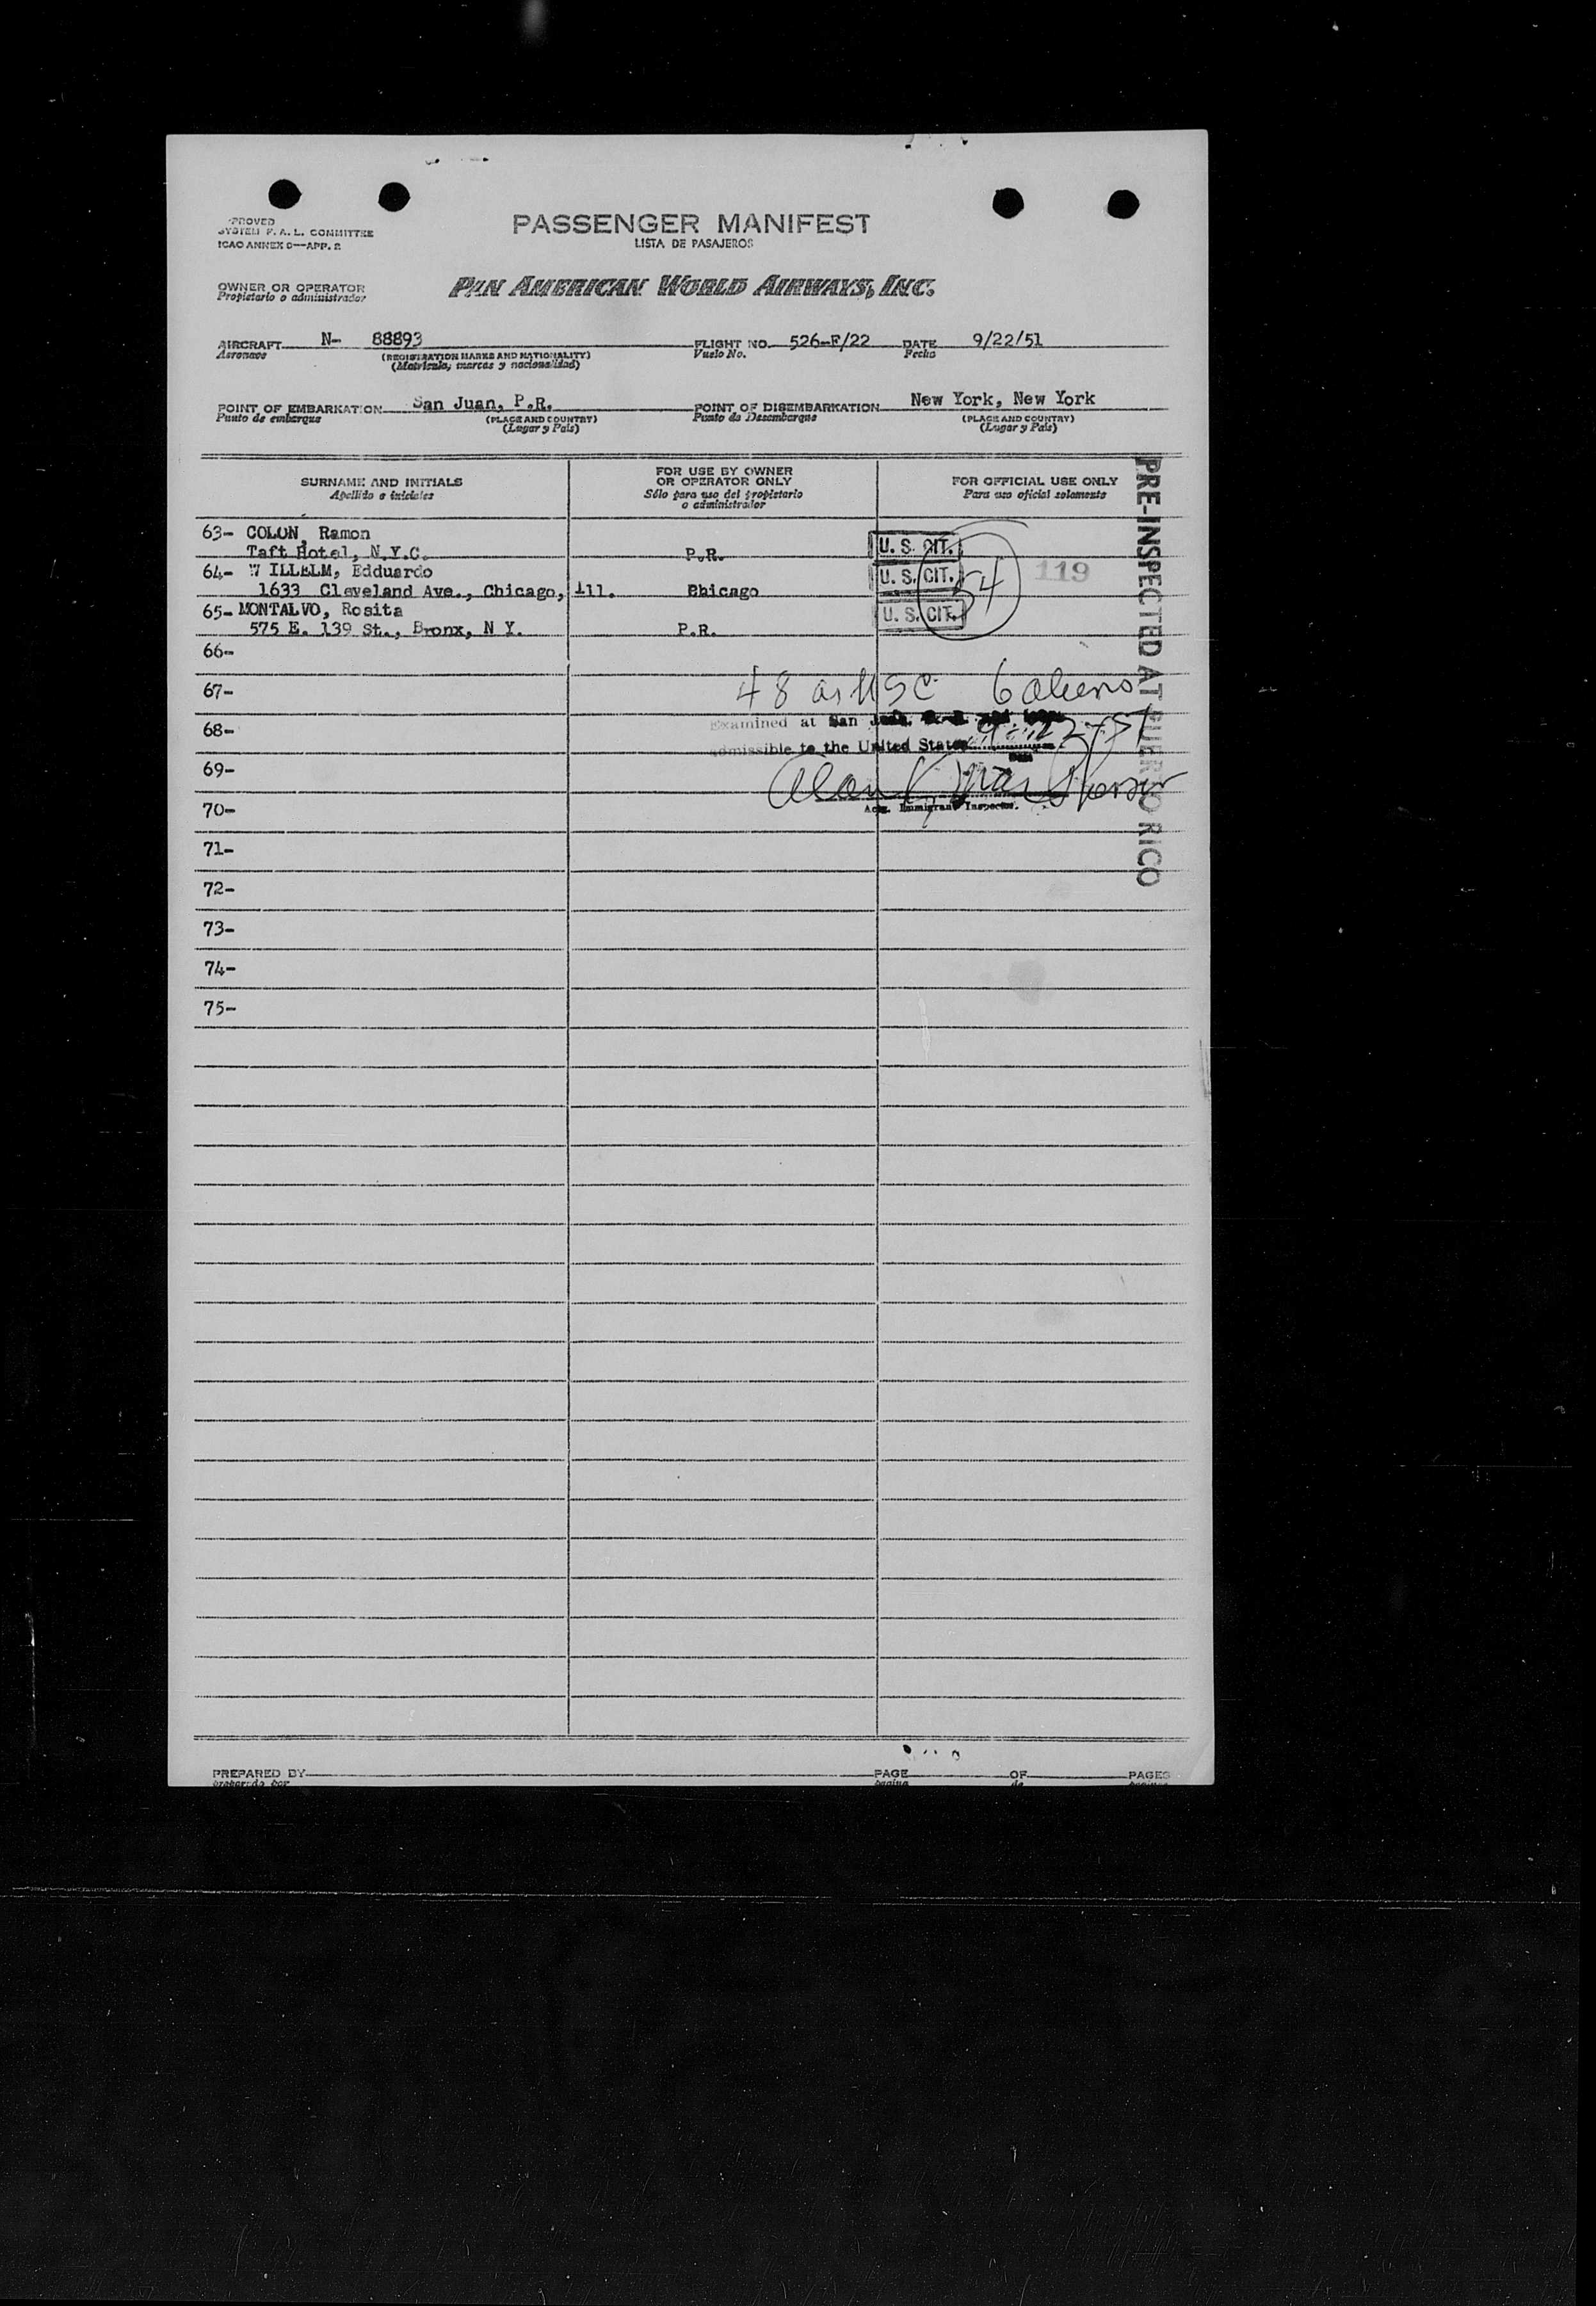 PROVED
SYSTEM F. A. L. COMMITTEE
ICAO ANNEX 9—APP. 2
PASSENGER MANIFEST
LISTA DE PASAJEROS
OWNER OR OPERATOR
Propietario o administrador
PAN AMERICAN WORLD AIRWAYS, INC.
AIRCRAFT N- 88893 FLIGHT NO. 526-F/22 DATE 9/22/51
Aeronave (REGISTRATION MARKS AND NATIONALITY) Vuelo No. Fecha
(Matricula, marcas y nacionalidad)
POINT OF EMBARKATION San Juan, P.R. POINT OF DISEMBARKATION New York, New York
Punto de embarque (PLACE AND COUNTRY) Punto de Desembarque (PLACE AND COUNTRY)
(Lugar y Pais) (Lugar y Pais)
SURNAME AND INITIALS
Apellido e iniciales
FOR USE BY OWNER
OR OPERATOR ONLY
Sólo para uso del propietario
o administrador
FOR OFFICIAL USE ONLY
Para uso oficial solamente
63- COLON, Ramon
Taft Hotel, N.Y.C. P.R. U. S. CIT.
64- W ILLELM, Edduardo
1633 Cleveland Ave., Chicago, Ill. Bhicago U. S. CIT. 54 119
65- MONTALVO, Rosita
575 E. 139 St., Bronx, N Y. P.R. U. S. CIT.
66-
67- 48 as USC 6 aliens
68- Examined at San Juan,
admissible to the United States 9-22-51
69-
70- Actg. Immigrant Inspector.
71-
72-
73-
74-
75-
PRE-INSPECTED AT PUERTO RICO
PREPARED BY PAGE OF PAGES
preparado por pagina de paginas